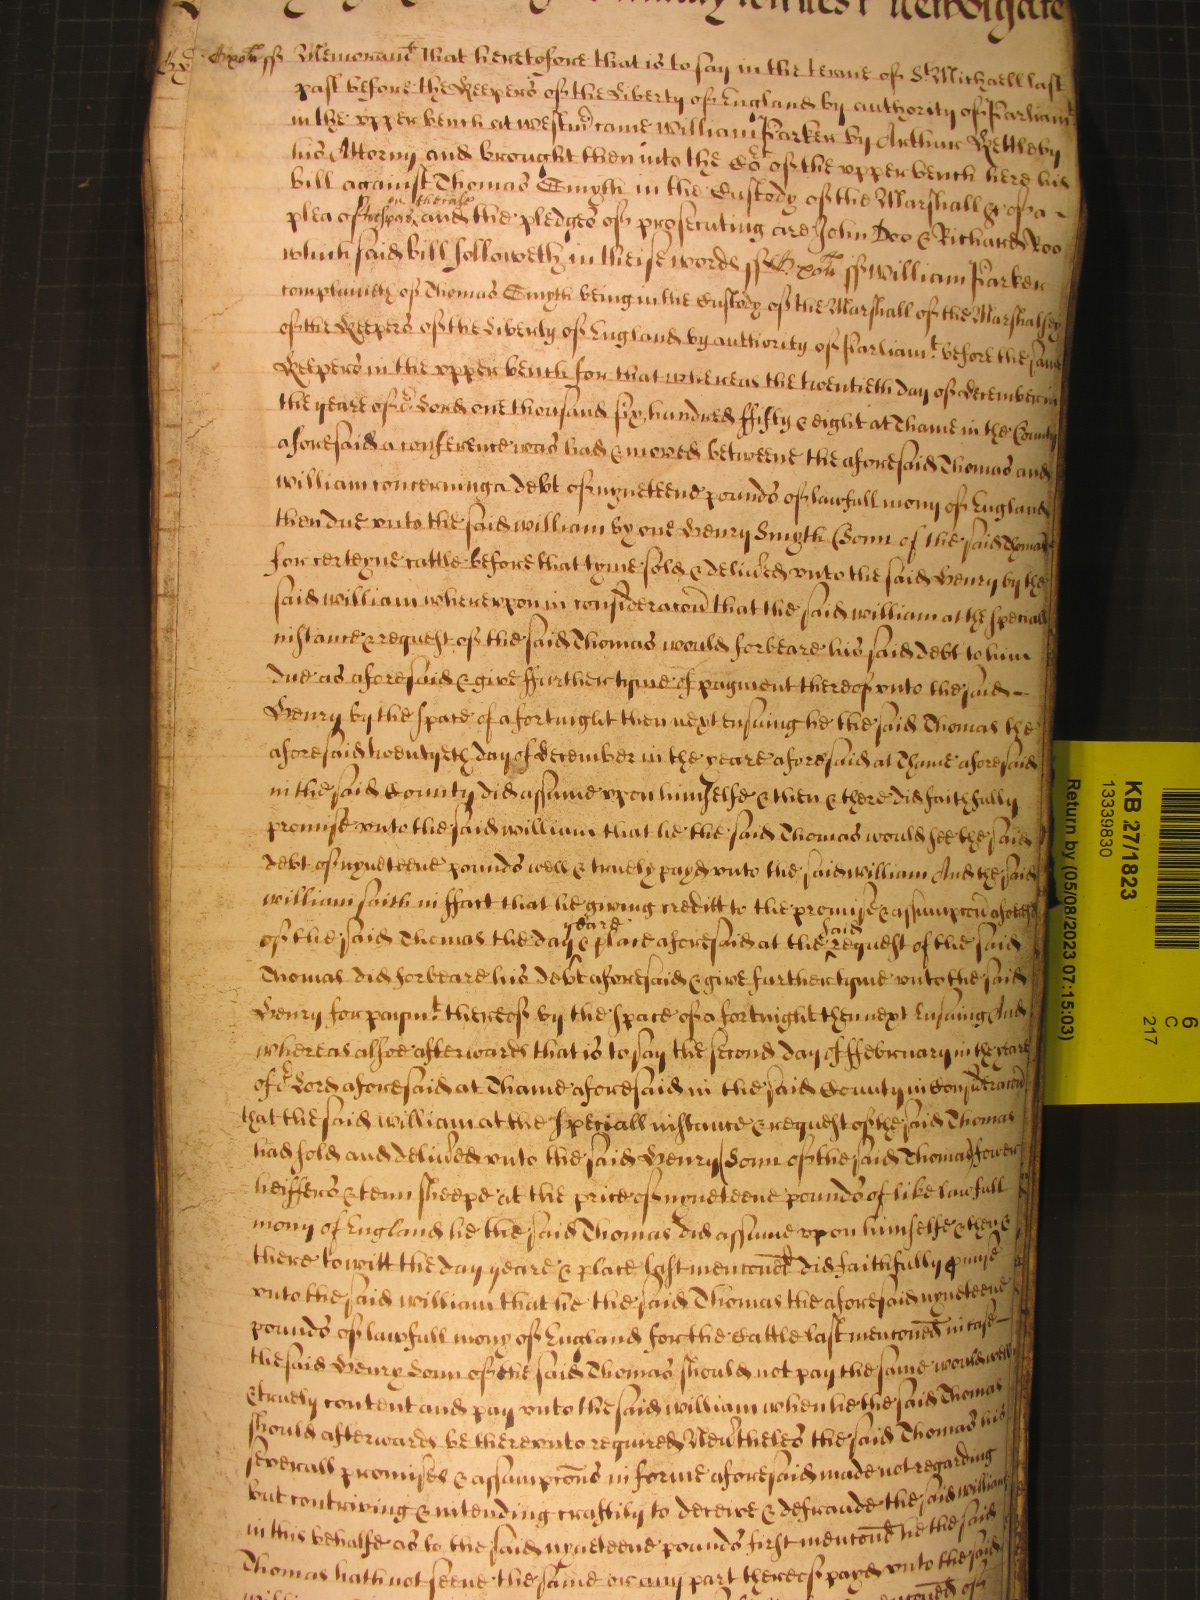 Oxoñ ss Memorand^t That heretofore that is to say in the terme of S^t Michaell last
past before the Keepers of the Liberty of England by authority of Parliam^t
in the vpper bench at westm^r came William Parker by Arthur Kettleby
his Attorny and brought then into the Co^rt of the vpper bench here his
bill against Thomas Smyth in the Custody of the Marshall &c of a
plea of trespas on the case and the pledges of prosecuting are John Doo & Richard Roo
which said bill followeth in theise words ss Oxoñ ss William Parker
complaineth of Thomas Smyth being in the Custody of the Marshall of the Marshalsey
of the Keepers of the Liberty of England by authority of Parliam^t before the said
Keepers in the vpper bench for that whereas the twentieth day of december in
the yeare of o^r Lord one thousand six hundred ffifty & eight at Thame in the County
aforesaid a conference was had & moved betweene the aforesaid Thomas and
william concerning a debt of nyneteene pounds of lawfull mony of England
then due vnto the said william by one Henry Smyth (Sonn of the said Thomas)
for certeyne cattle before that tyme sold & deliũed vnto the said Henry by the
said william wherevpon in consideracoñ that the said william at the speciall
instance & request of the said Thomas would forbeare his said debt to him
due as aforesaid & give ffurther tyme of payment thereof vnto the said
Henry by the space of a fortnight then next ensuing he the said Thomas the
aforesaid twentyeth day of december in the yeare aforesaid at Thame aforesaid
in the said County did assume vpon himselfe & then & there did faithfully
promise vnto the said william that he the said Thomas would see the said
debt of nyneteene pounds well & truely payd vnto the said william And the said
william saith in ffact that he giving creditt to the promise & assumpcoñ aforesd
of the said Thomas the day yeare & place aforesaid at the said request of the said
Thomas did forbeare his debt aforesaid & give further tyme vnto the said
Henry for paym^t thereof by the space of a fortnight then next Ensuing And
whereas alsoe afterwards that is to say the second day of ffebruary in the yeare
of o^r Lord aforesaid at Thame aforesaid in the said County in Consideracoñ
that the said william at the speciall instance & request of the said Thomas
had sold and deliũed vnto the said Henry (Sonn of the said Thomas) fower
heiffers & tenn sheepe at the price of nyneteene pounds of like lawfull
mony of England he the said Thomas did assume vpon himselfe & then &
there to witt the day yeare & place last menconed did faithfully ꝓmise
vnto the said william that he the said Thomas the aforesaid nyneteene
pounds of lawfull mony of England for the Cattle last menconed in case
the said Henry Sonn of the said Thomas should not pay the same would well
& truely content and pay vnto the said william when he the said Thomas
should afterwards be therevnto required Neũtheles the said Thomas his
severall promises & assumpcons in forme aforesaid made not regarding
but contriving & intending craftily to deceive & defraude the said william
in this behalfe as to the said nyneteene pounds first menconed he the said
Thomas hath not seene the same or any part thereof payd vnto the said
KB 27/1823
13339830
Return by (05/08/2023 07:15:03)
6
C
217